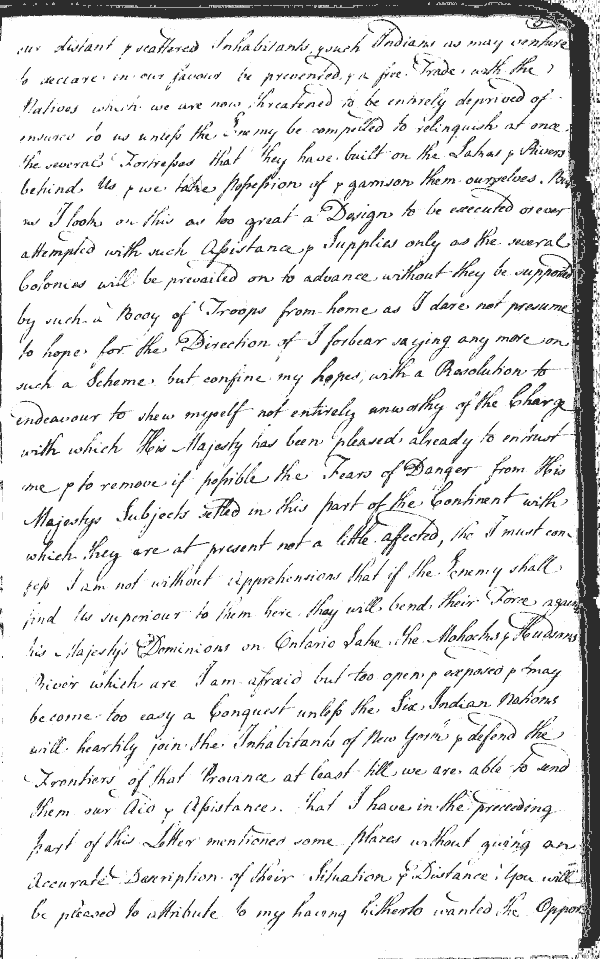 5
our distant & scattered Inhabitants, & such Indians as may venture
to declare in our favour be prevented, & a free Trade with the
Natives which we are now threatened to be entirely deprived of
insured to us unless the Enemy be compelled to relinquish at once
the several Fortresses that they have built on the Lakes & Rivers
behind Us & we take Possession of & garrison them ourselves. But
as I look on this as too great a Design to be executed or ever
attempted with such Assistance & Supplies only as the several
Colonies will be prevailed on to advance without they be supported
by such a Body of Troops from home as I dare not presume
to hope for the Direction of I forbear saying any more on
such a Scheme but confine my hopes, with a Resolution to
endeavour to shew myself not entirely unworthy of the Charge
with which His Majesty has been pleased already to entrust
me & to remove if possible the Fears of Danger from His
Majestys Subjects settled in this part of the Continent with
which they are at present not a little affected, tho I must con-
fess I am not without apprehensions that if the Enemy shall
find Us superiour to them here they will bend their Force against
his Majesty's Dominions on Ontario Lake the Mohocks & Hudsons
River which are I am afraid but too open & exposed & may
become too easy a Conquest unless the Six Indian Nations
will heartily join the Inhabitants of New York & defend the
Frontiers of that Province at least till we are able to send
them our Aid & Assistance. That I have in the preceding
part of this Letter mentioned some places without giving an
accurate Description of their Situation & Distance You will
be pleased to attribute to my having hitherto wanted the Oppor